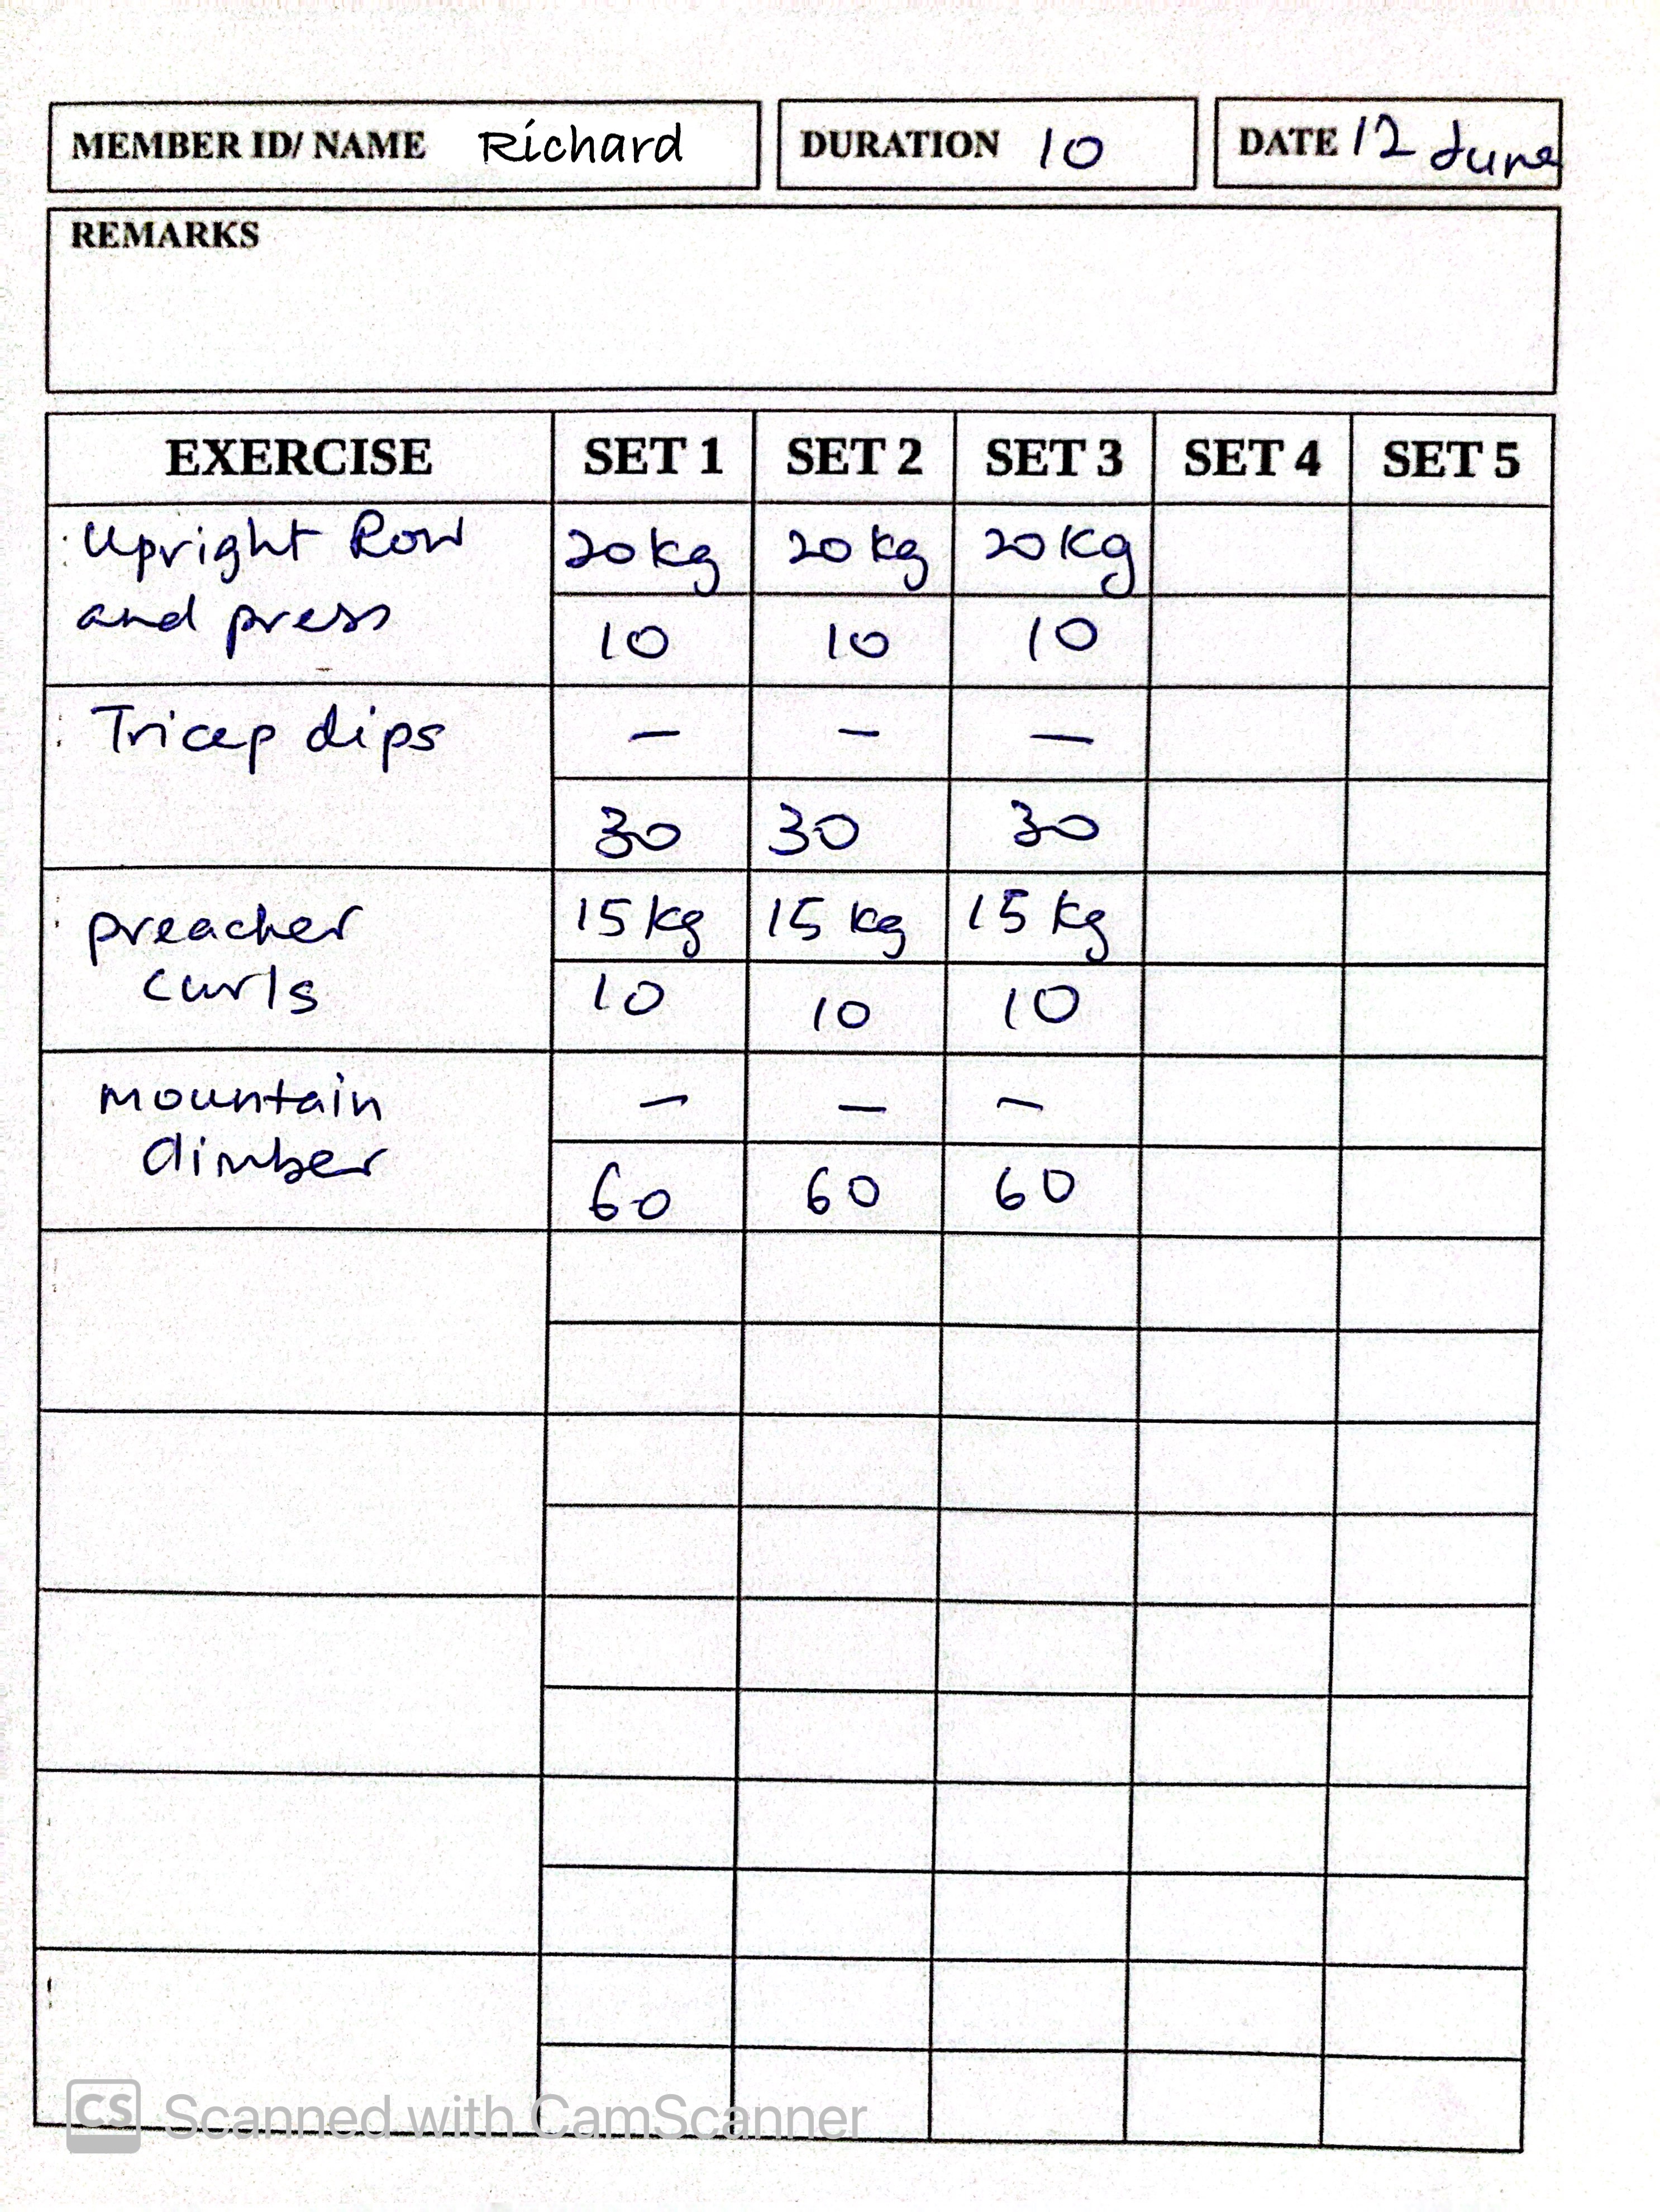 MEMBER ID/ NAME Richard DURATION 10 DATE 12 June
REMARKS
EXERCISE SET 1 SET 2 SET 3 SET 4 SET 5
Upright Row 20kg 20 kg 20 Kg
and press 10 10 10
Tricep dips – – –
30 30 30
preacher 15 kg 15 kg 15 kg
curls 10 10 10
mountain – – –
climber 60 60 60
CS Scanned with CamScanner